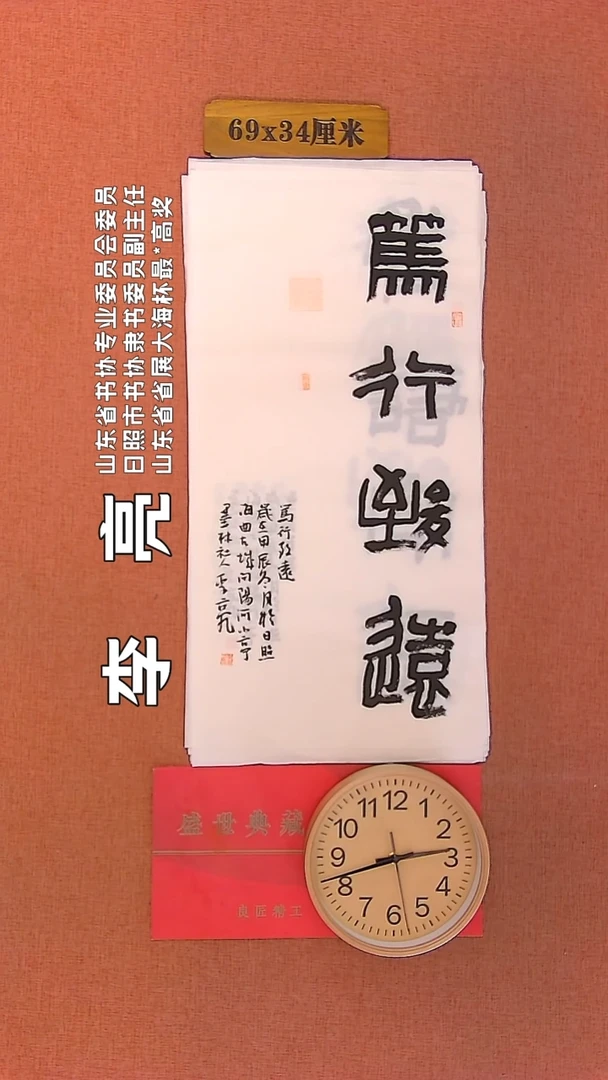 69x34厘米
山东省书协专业委员会委员
日照市书协隶书委员副主任
山东省省展大海杯最*高奖
李亮
篤行致遠
篤行致遠
歲在甲辰冬月於日照
西田大城问陽河小亭
墨林社人李亮
盛世典藏
良匠精工
12
1
2
3
4
5
6
7
8
9
10
11